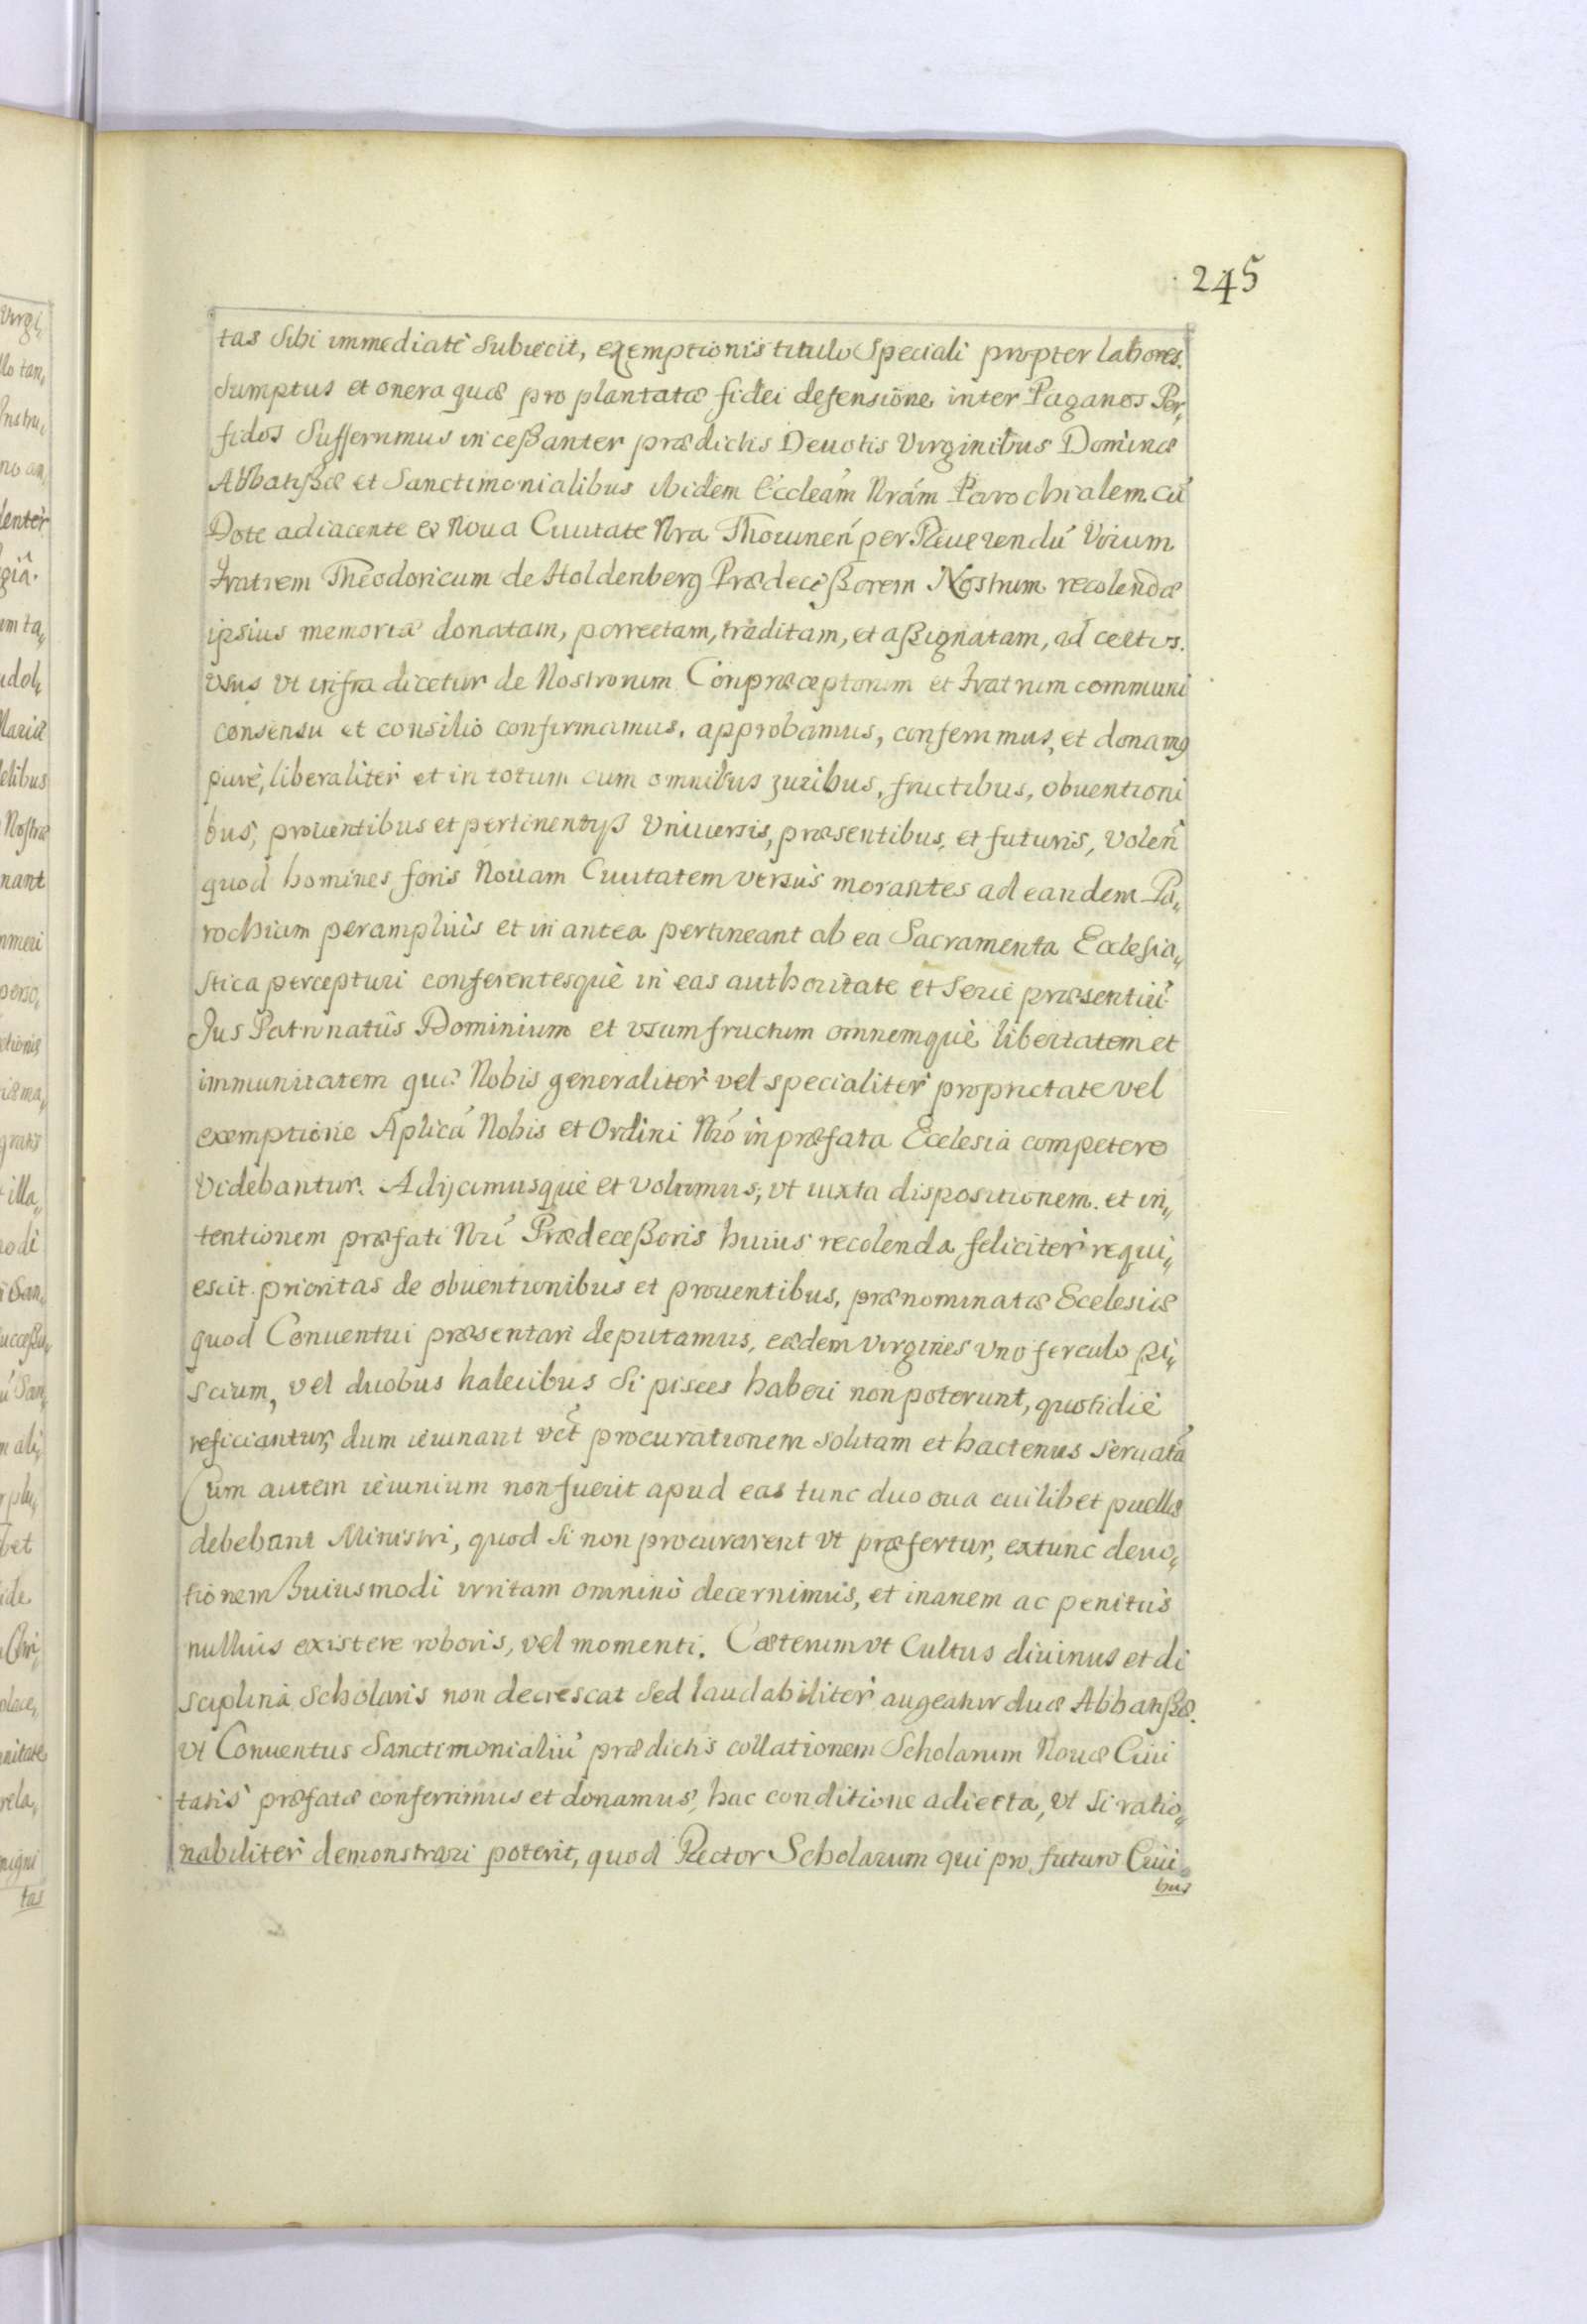 245
tas sibi immediatè subiecit, exemptionis titulo speciali propter labores.
sumptus et onera quæ pro plantatæ fidei defensione inter Paganos Per„
fidos Sufferrimus in ceßanter prædictis Deuotis Virginibus Dominæ
Abbatißæ et Sanctimonialibus ibidem Eccleãm Nrãm Parochialem cũ
Dote adiacente ex Noua Ciuitate Nra Thorunen̄ per Reuerendũ Virum
Fratrem Theodoricum de Holdenberg Prædeceßorem Nostrum recolendæ
ipsius memoriæ donatam, porrectam, traditam, et aßignatam, ad certos.
vsus vt infra dicetur de Nostrorum Conpræceptorum et Fratrum communi
consensu et consilio confirmamus, approbamus, conferimmus, et donamꝰ
purè, liberaliter et in totum cum omnibus juribus, fructibus, obuentioni
bus, prouentibus et pertinentijß Vniuersis, præsentibus, et futuris, volen̄
quod homines foris Nouam Ciuitatem versus morantes ad eandem Pa„
rochiam perampliùs et in antea pertineant ab ea Sacramenta Ecclesia„
stica percepturi conferentesquè in eas authoritate et serie præsentiũ
Jus Patronatûs Dominium et vsum fructum omnemquè libertatem et
immunitatem quæ Nobis generaliter vel specialiter proprietate vel
exemptione Aplicã Nobis et Ordini Nr̃o in præfata Ecclesia competere
Videbantur. Adijcimusquè et volumus, vt iuxta dispositionem et in„
tentionem præfati Nr̃i Prædeceßoris huius recolenda feliciter requi„
escit prioritas de obuentionibus et prouentibus, prænominatæ Ecclesiæ
quod Conuentui præsentari deputamus, eædem virgines vno ferculo pi„
scium, vel duobus halecibus si pisces haberi non poterunt, quotidiè
reficiantur, dum ieiunant vct̃ procurationem solitam et hactenus seruatã
Cum autem ieiunium non fuerit apud eas tunc duo oua cuilibet puellæ
debebunt Ministri, quod si non procurarent vt præfertur, extunc deuo„
tionem huiusmodi irritam omninò decernimus, et inanem ac penitùs
nullius existere roboris, vel momenti. Cæterum vt Cultus diuinus et di
sciplina Scholaris non decrescat sed laudabiliter augeatur duæ Abbatißæ.
vt Conuentus Sanctimonialiũ prædictis collationem Scholarum Nouæ Ciui
tatis præfatæ conferrimus et donamus, hac conditione adiecta, vt si ratio„
nabiliter demonstrari poterit, quod Rector Scholarum qui pro futuro Ciui„
bus